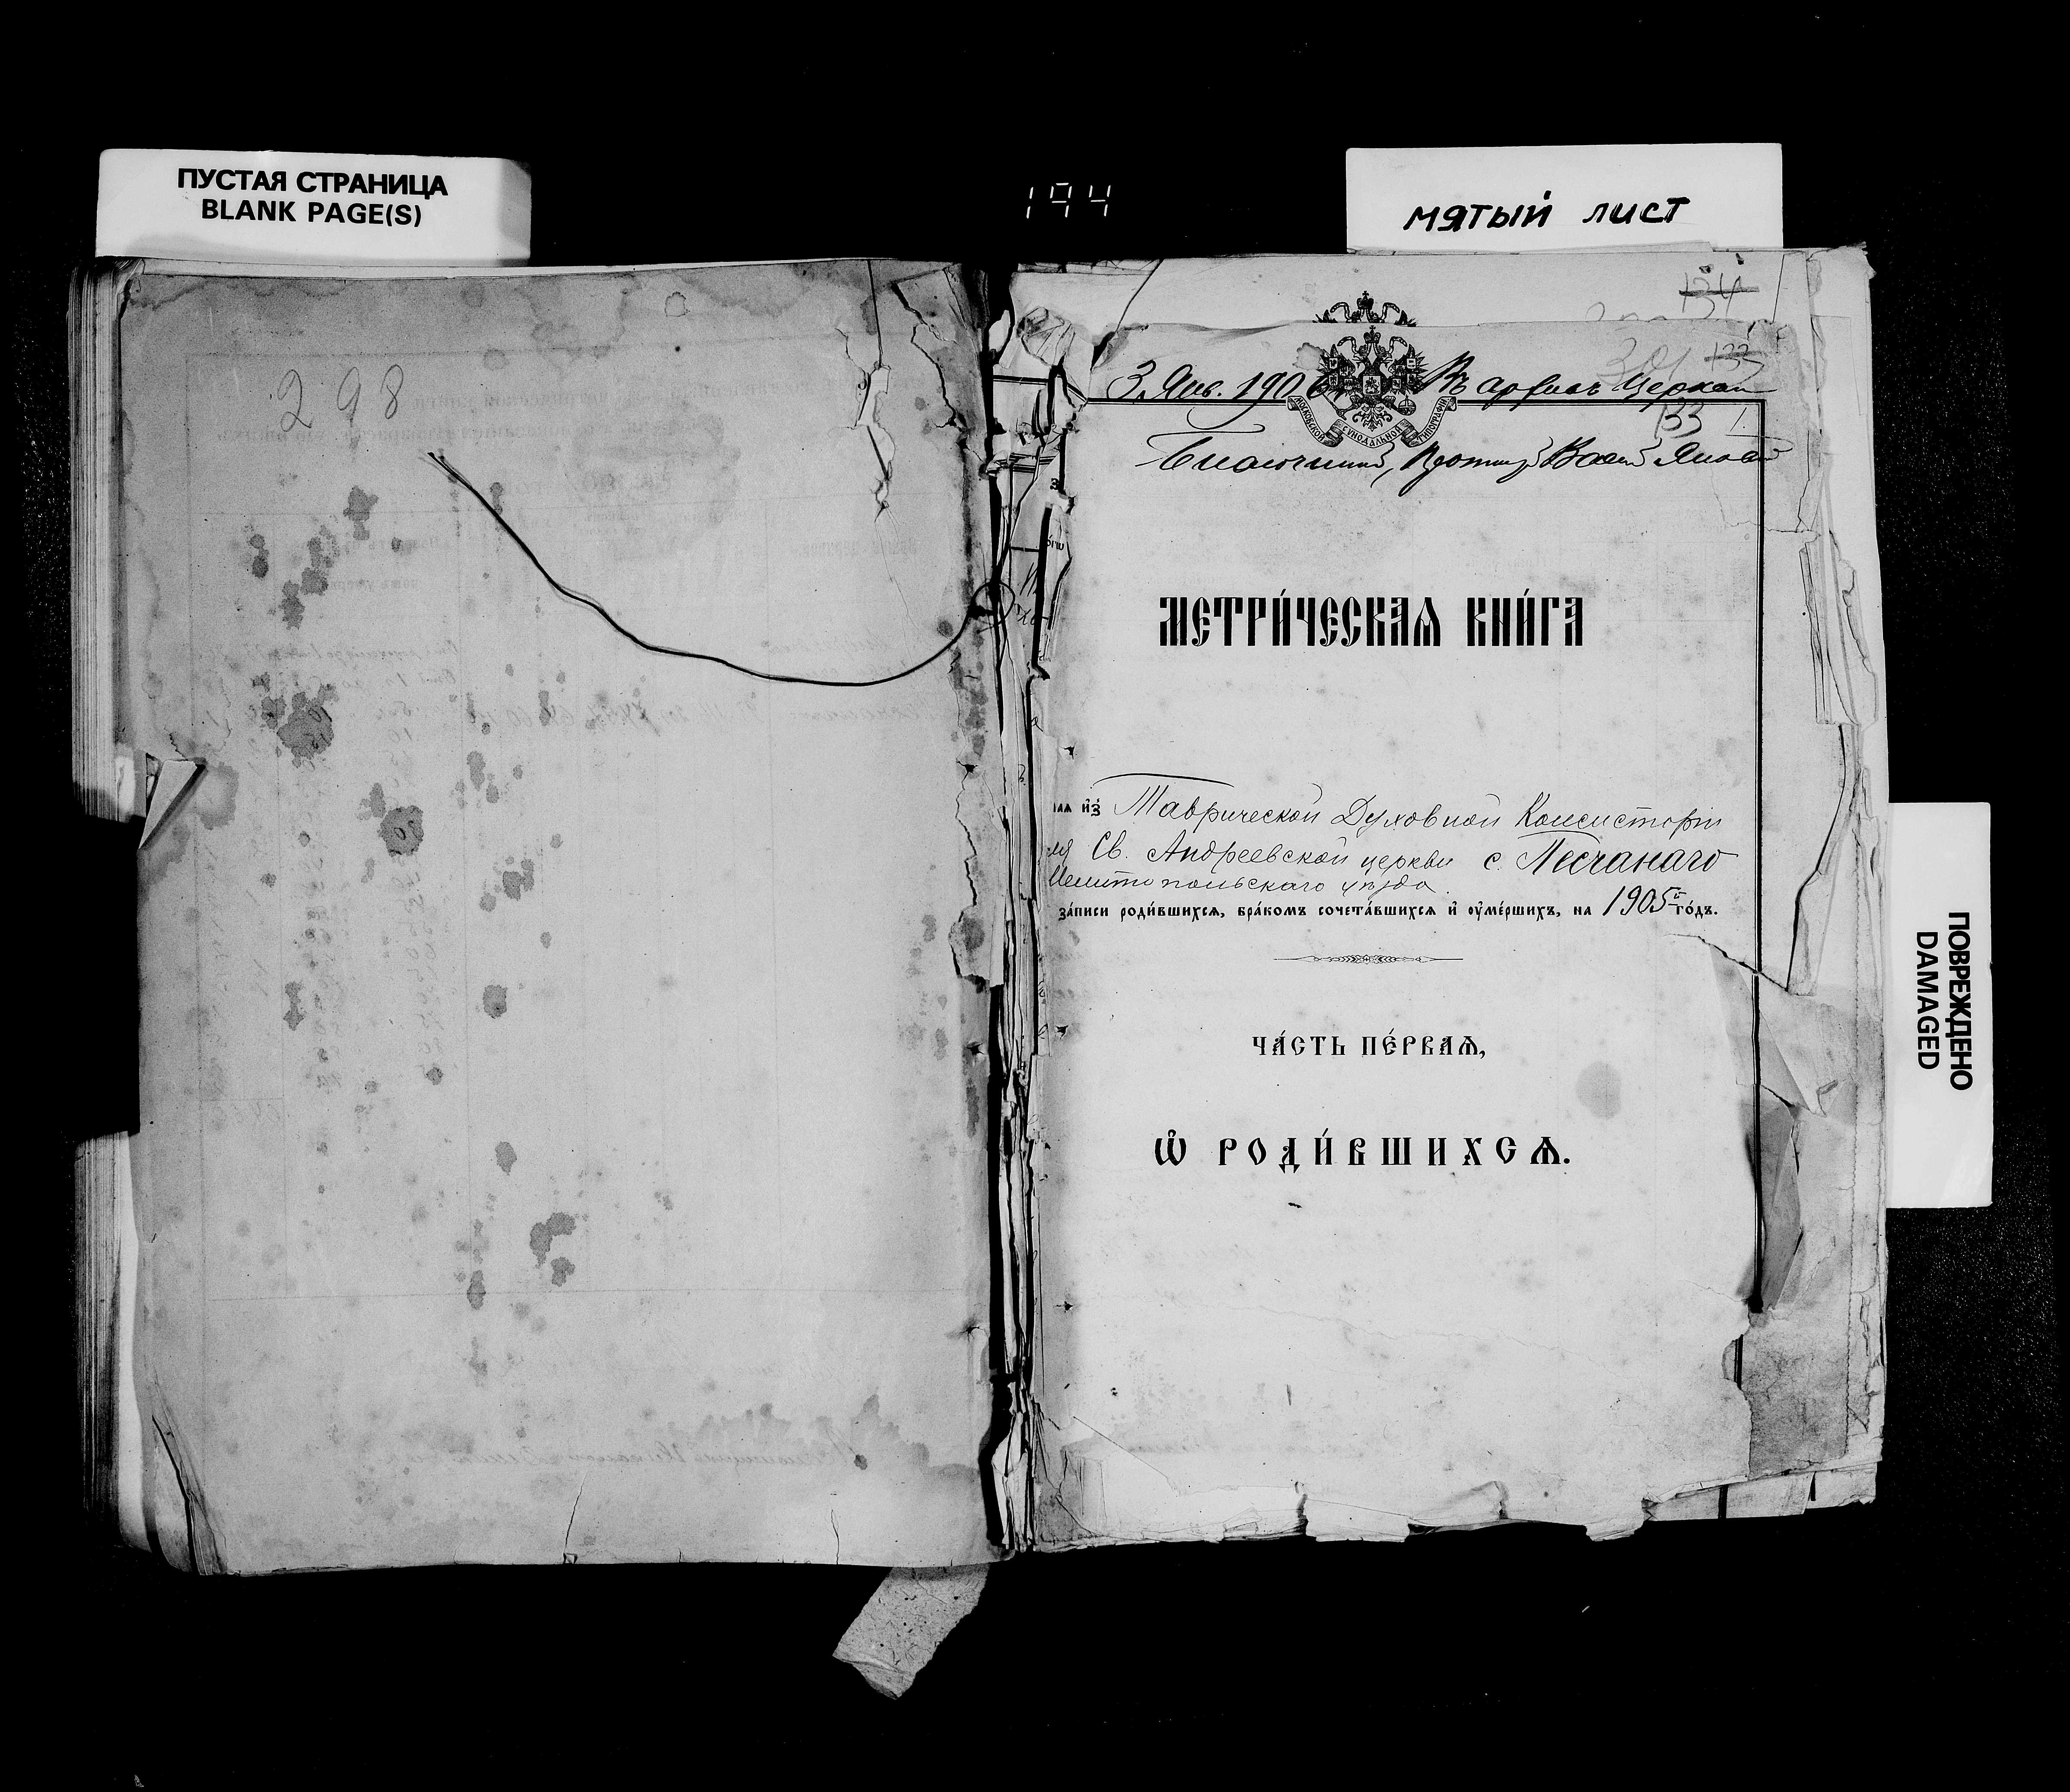 ПУСТАЯ СТРАНИЦА
BLANK PAGE(S)
194
мятый лист
298
134
301
133
3 Янв. 1906 Въ архивъ Церкви
133 1.
МЕТРИ́ЧЕСКАѦ КНИ́ГА
из Таврической Духовной Консисторіи
Св. Андреевской церкви с. Песчанаго
Мелитопольскаго уѣзда.
за́писи роди́вшихсѧ, бра́комъ сочета́вшихсѧ и оуме́ршихъ, на 1905й го́дъ.
ЧА́СТЬ ПЕ́РВАѦ,
Ѡ҆ РОДИ́ВШИХСѦ.
ПОВРЕЖДЕНО
DAMAGED